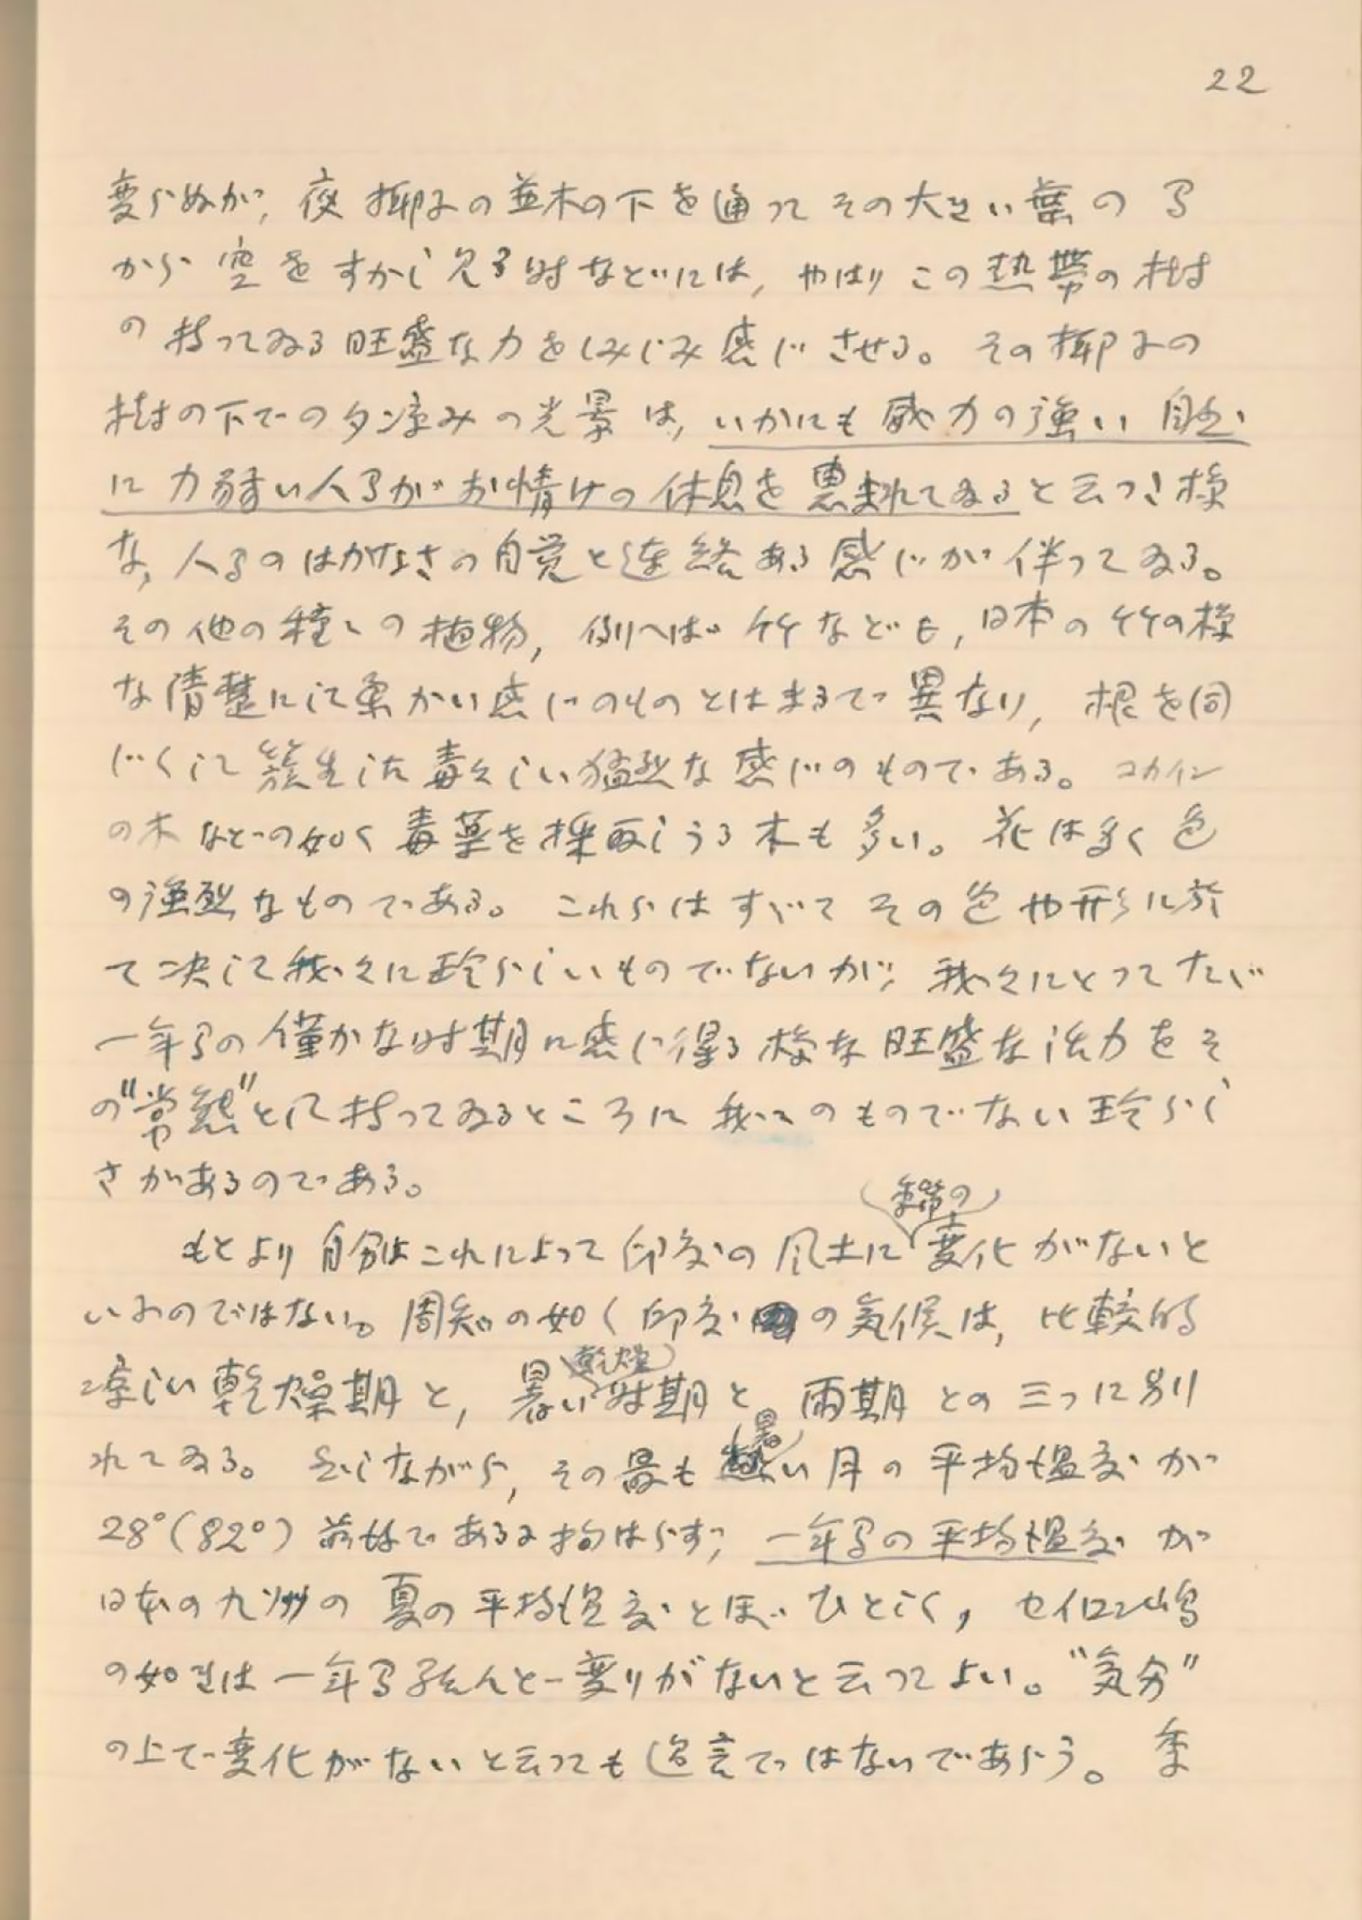 22
変らぬが, 夜 椰子の並木の下を通って その大きい葉の间
から 空をすかし見る時などには, やはり この熱帯の樹
の持ってゐる旺盛な力をしみじみ感じさせる。 その椰子の
樹の下での夕凉みの光景は, いかにも威力の強い自然
に力弱い人间がお情けの休息を恵まれてゐると云つた様
な, 人间のはかなさの自覚と連絡ある感じが伴ってゐる。
その他の種々の植物, 例へば竹なども, 日本の竹の様
な清楚にして柔かい感じのものとはまるで異なり, 根を同
じくして簇生した毒々しい猛烈な感じのものである。 コカイン
の木などの如く毒薬を採取しうる木も多い。 花は多く色
の強烈なものである。 これらはすべてその色や形に於
て決して我々に珍らしいものでないが, 我々にとってたゞ
一年间の僅かな時期に感じ得る様な旺盛な活力をそ
の"常態"として持ってゐるところに我々のものでない珍らし
さがあるのである。
もとより自分はこれによって印度の風土に季節の変化がないと
いふのではない。 周知の如く印度の気候は, 比較的
凉しい乾燥期と, 暑い乾燥時期と, 雨期との三つに別
れてゐる。 然しながら, その最も暑い月の平均温度が
28°(82°)前後であるに拘はらず, 一年间の平均温度が
日本の九州の夏の平均温度とほゞひとしく, セイロン島
の如きは一年间殆んど変りがないと云ってよい。 "気分"
の上で変化がないと云っても過言ではないであらう。 季